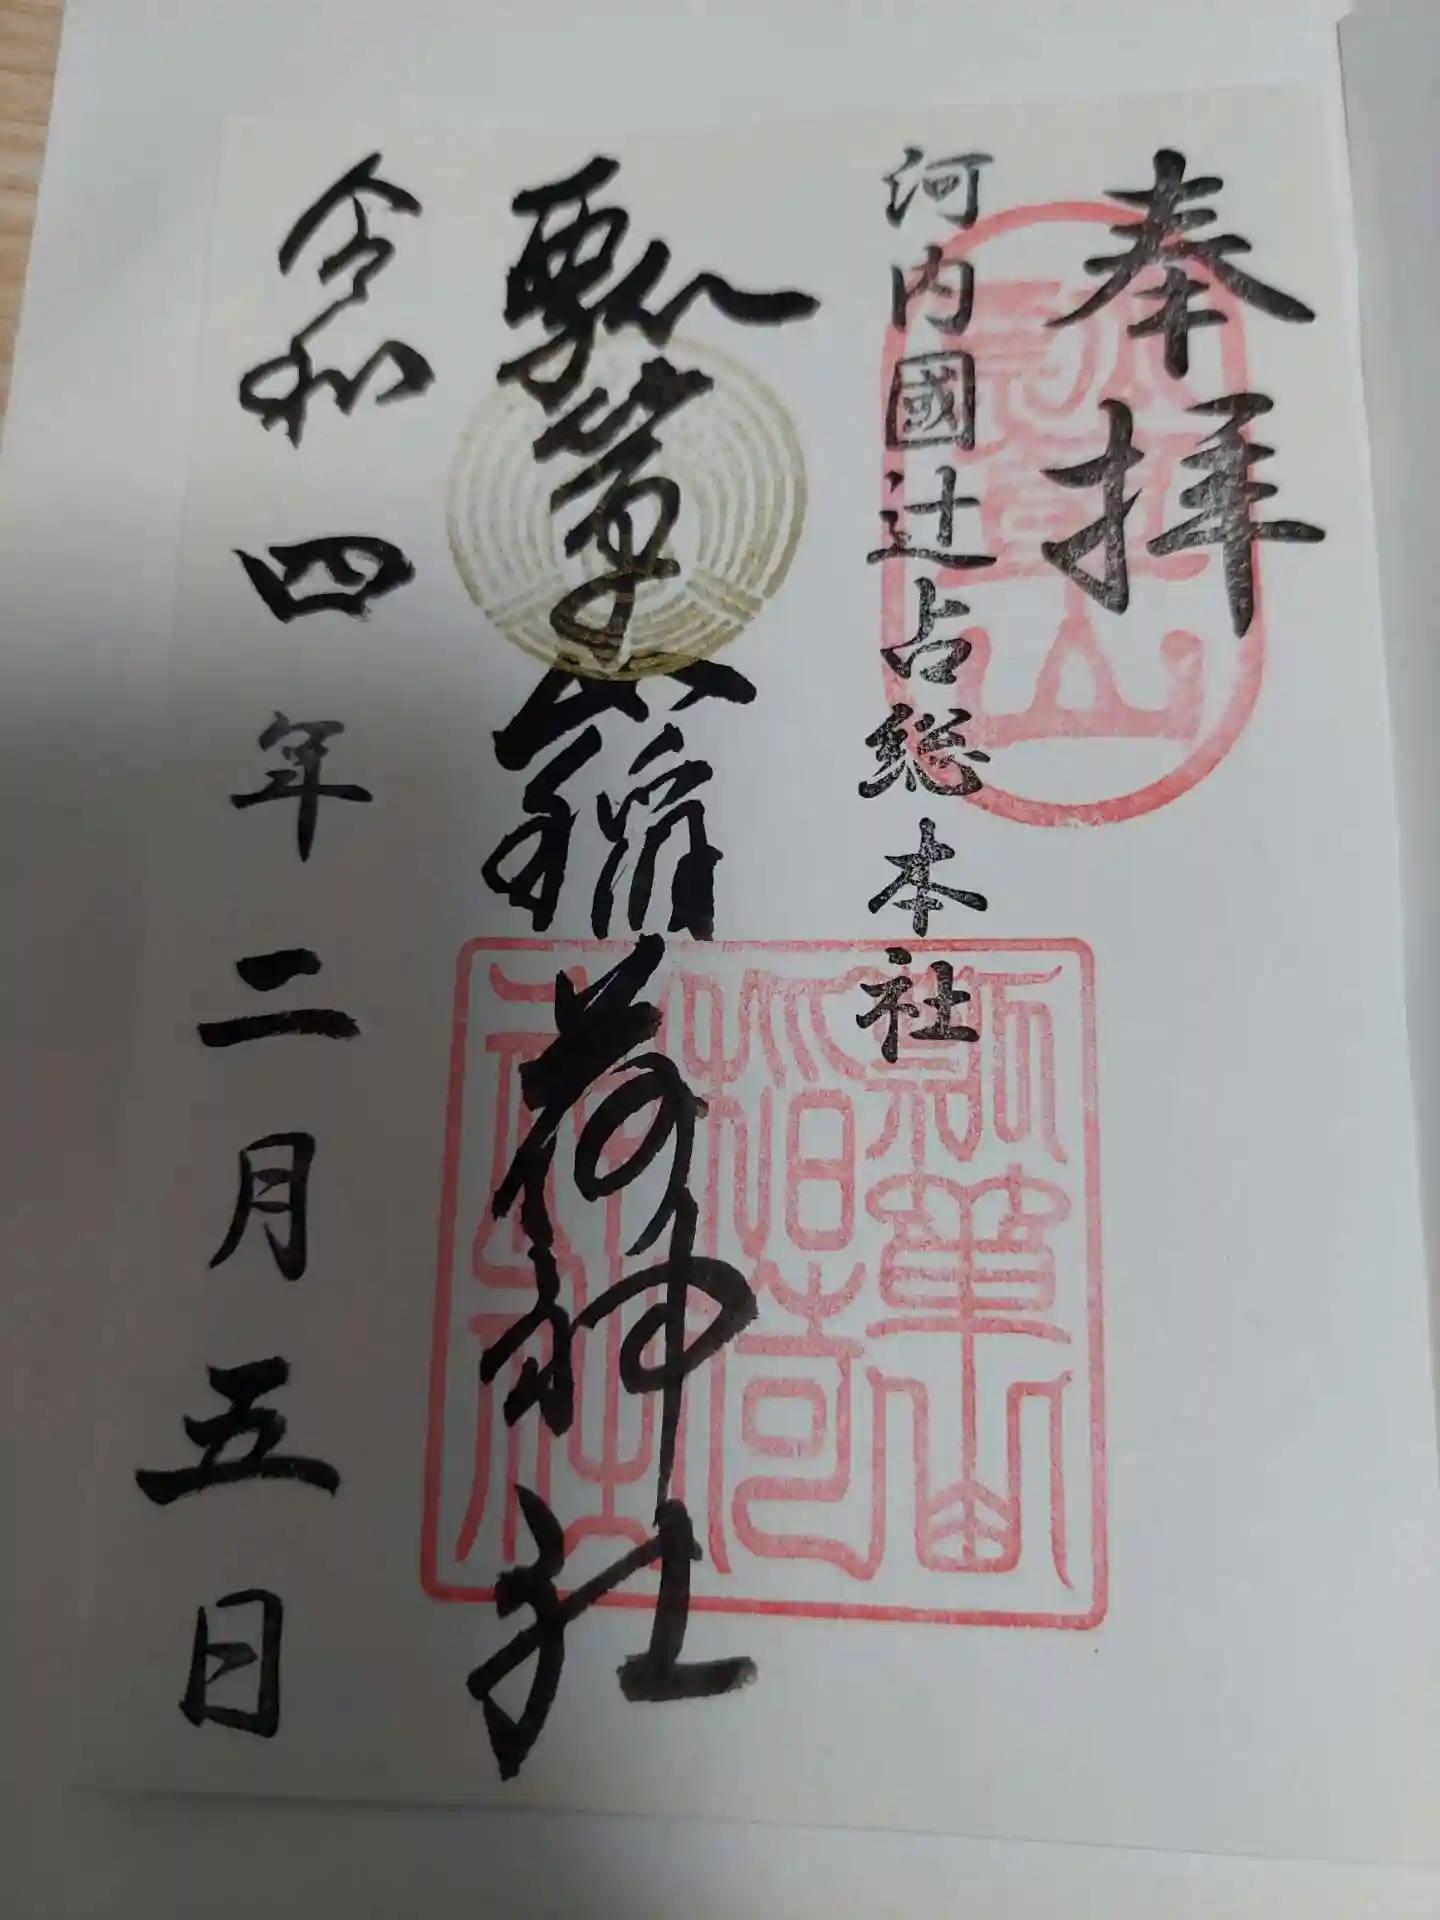 奉拝
河内國辻占総本社
瓢箪山
瓢箪山稲荷神社
瓢箪山稲荷神社
令和四年二月五日